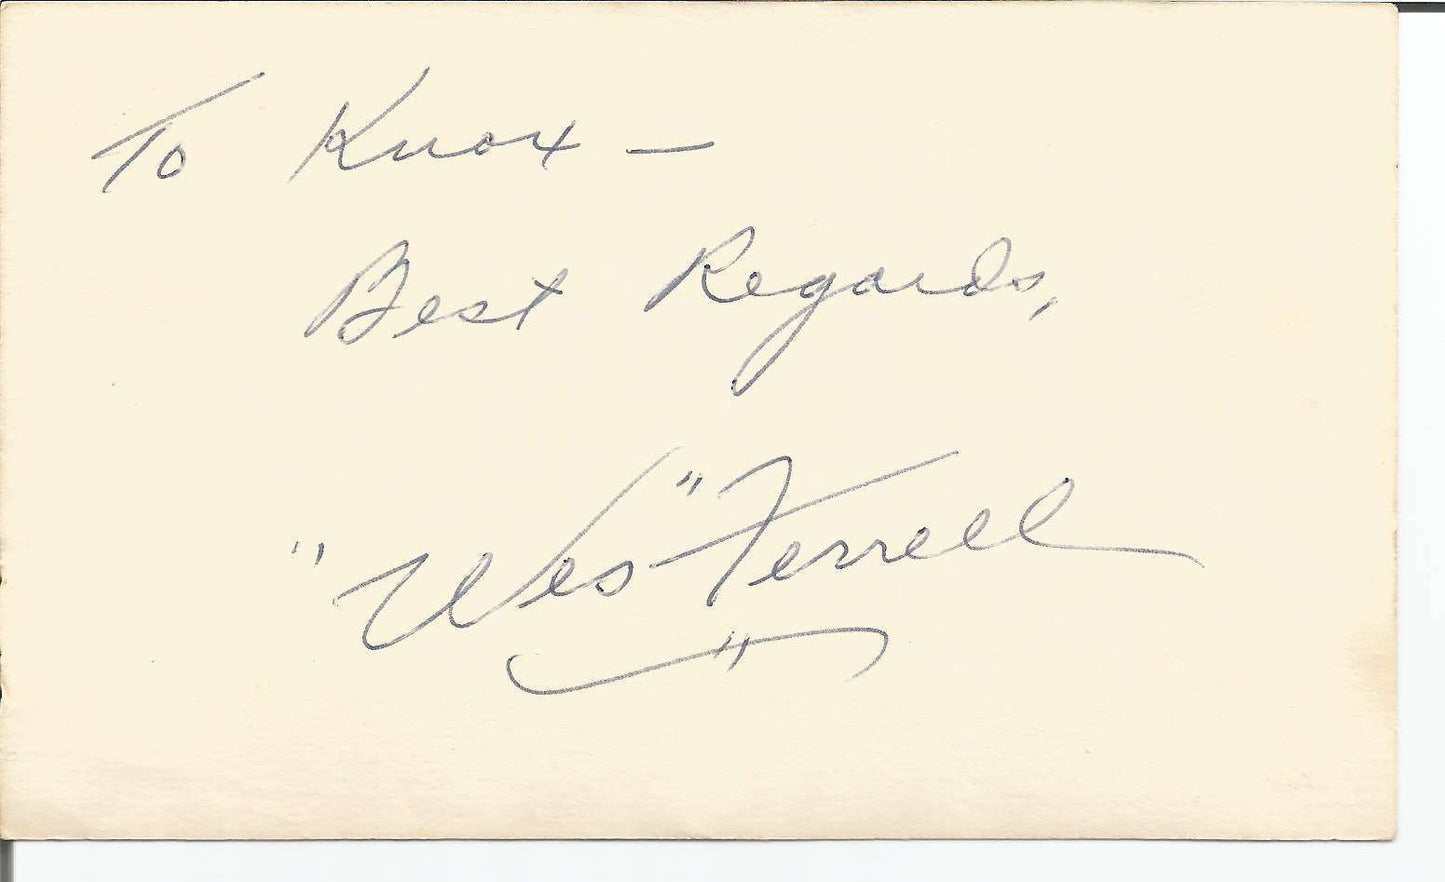 To Knox —
Best Regards,
"Wes" Ferrell